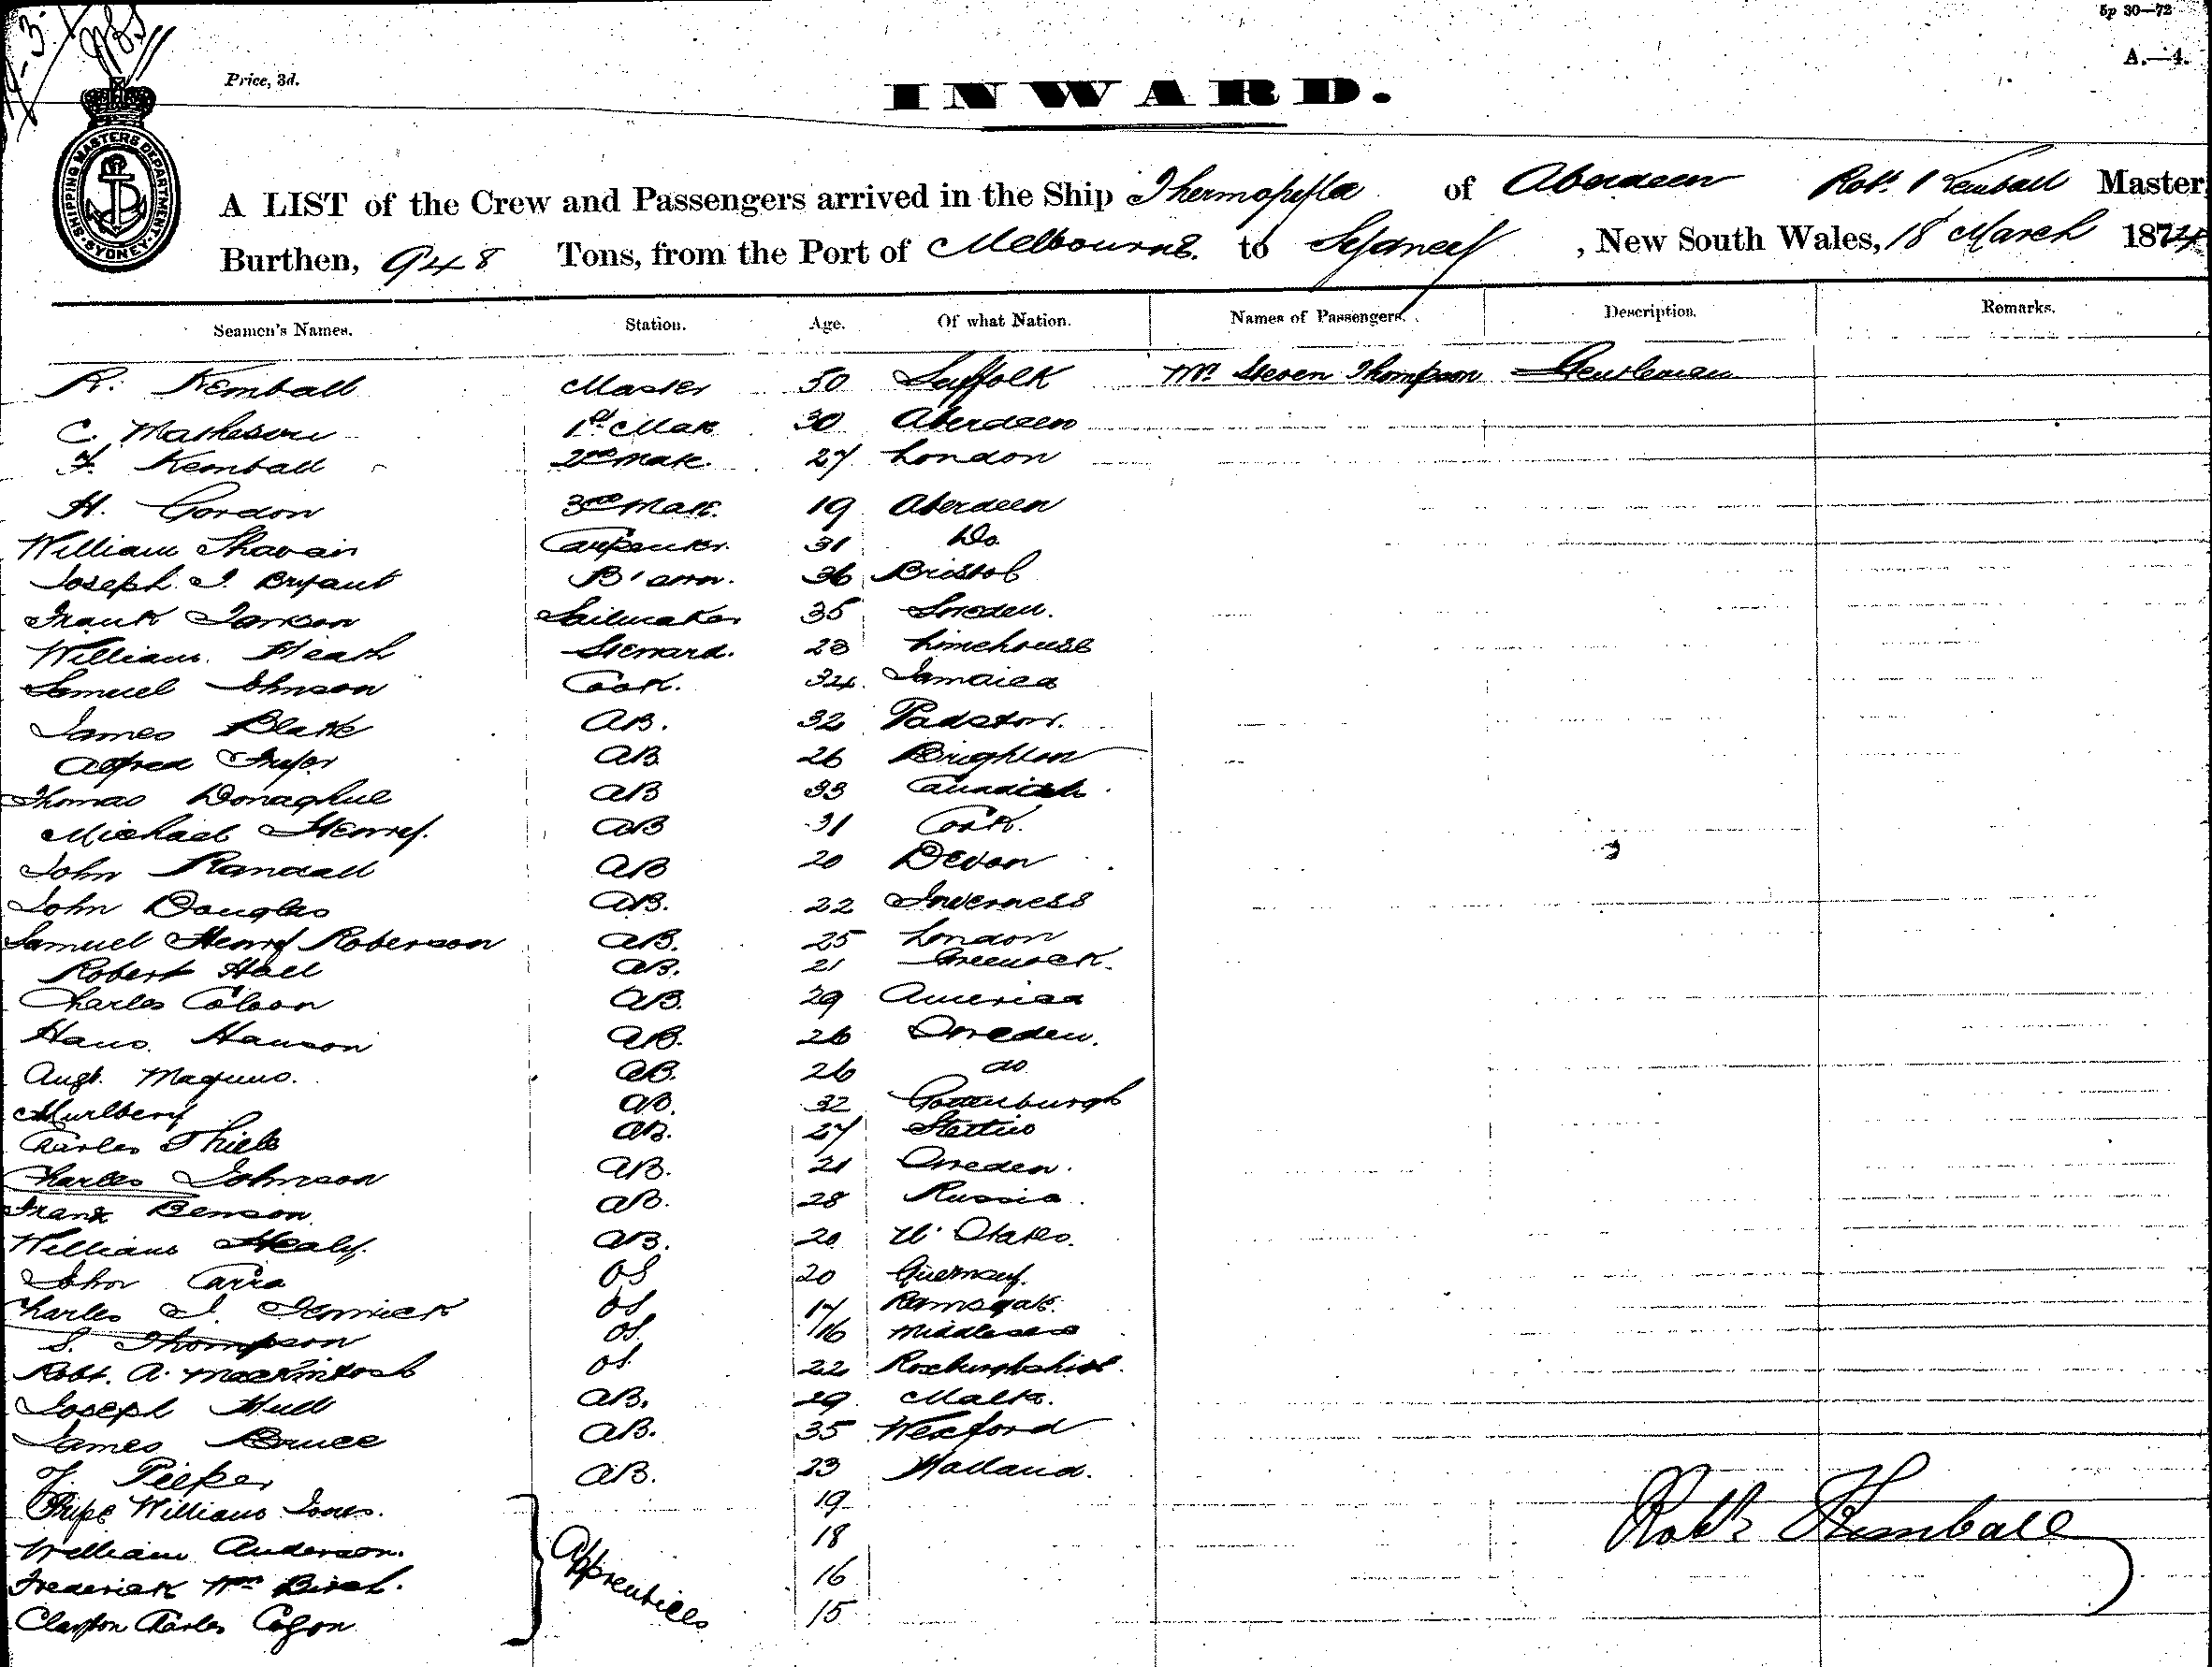 5p 30—72
A.—4.
Price, 3d.
INWARD.
SHIPPING MASTERS DEPARTMENT SYDNEY
A LIST of the Crew and Passengers arrived in the Ship Thermopylae of Aberdeen Robt. Kemball Master,
Burthen, 948 Tons, from the Port of Melbourne to Sydney, New South Wales, 18 March 1874
Seamen's Names. Station. Age. Of what Nation. Names of Passengers. Description. Remarks.
R. Kemball Master 50 Suffolk Mr. Steven Thompson Gentleman
C. Matheson 1st Mate 30 Aberdeen
F. Kemball 2nd Mate. 27 London
H. Gordon 3rd Mate. 19 Aberdeen
William Carpenter. 31 Do
Joseph J. Bryant B'swn. 36 Bristol
Frank Larsson Sailmaker 35 Sweden.
William Heath Steward. 23 Limehouse
Samuel Johnson Cook. 34 Jamaica
James Blake AB. 32 Padstow.
Alfred AB 26 Brighton
Thomas Donaghue AB 33
Michael Henry. AB 31 Cork.
John Randall AB 20 Devon
John Douglas AB. 22 Inverness
Samuel Henry Roberson AB. 25 London
Robert Hall AB. 21 Greenock.
Charles Colson AB. 29 America
Hans. Hanson AB. 26 Sweden.
Augt. Magnus. AB. 26 do
Murlbery AB. 32 Gottenburgh
Charles Thiele AB. 27 Stettin
Charles Johnson AB. 21 Sweden.
Frank Benson AB. 28 Russia.
William Healy. AB. 20 U. States.
John Carra OS 20 Guernsey.
Charles J. OS 17 Ramsgate.
S. Thompson OS. 16 Middlesex
Robt. A. Mackintosh OS. 22 Roxburghshire.
Joseph Hull AB. 29 Malta.
James Bruce AB. 35 Wexford
F. Pieper AB. 23 Holland.
William Jones. 19
William Anderson. 18
Apprentices
Frederick Wm Birch. 16
Clayton Charles 15
Robt Kemball